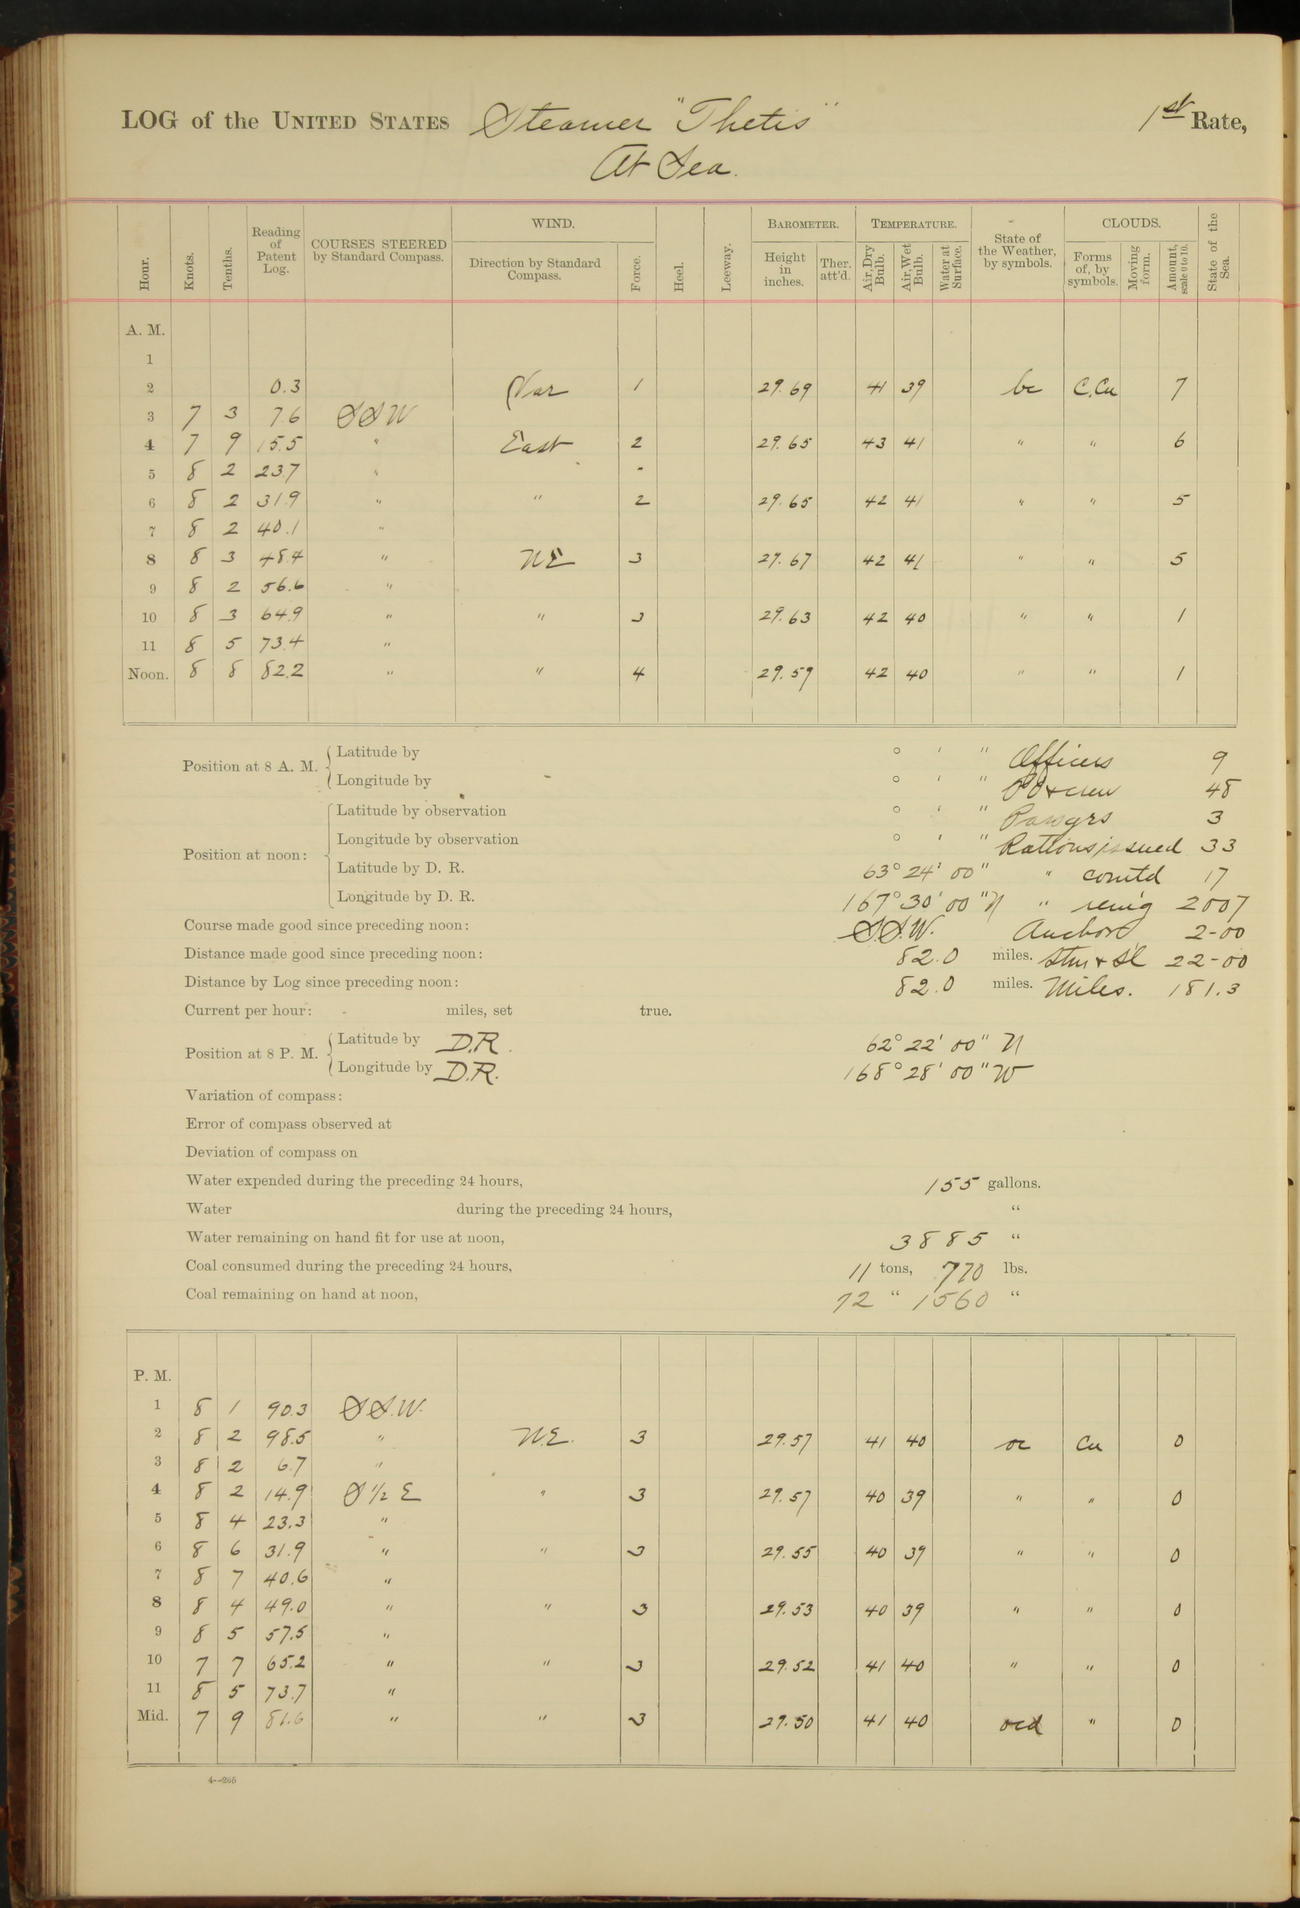 LOG of the UNITED STATES Steamer "Thetis" 1st Rate,
At Sea.
Hour. Knots. Tenths. Reading of Patent Log. COURSES STEERED by Standard Compass. WIND. Direction by Standard Compass. Force. Heel. Leeway. BAROMETER. Height in inches. Ther. att'd. TEMPERATURE. Air, Dry Bulb. Air, Wet Bulb. Water at Surface. State of the Weather, by symbols. CLOUDS. Forms of, by symbols. Moving form. Amount, scale 0 to 10. State of the Sea.
A. M.
1
2 0.3 Var 1 29.69 41 39 bc C.Cu 7
3 7 3 7.6 SSW
4 7 9 15.5 " East 2 29.65 43 41 " " 6
5 8 2 23.7 "
6 8 2 31.9 " " 2 29.65 42 41 " " 5
7 8 2 40.1 "
8 8 3 48.4 " NE 3 29.67 42 41 " " 5
9 8 2 56.6 "
10 8 3 64.9 " " 3 29.63 42 40 " " 1
11 8 5 73.4 "
Noon. 8 8 82.2 " " 4 29.59 42 40 " " 1
Position at 8 A. M. Latitude by ° ' " Officers 9
Longitude by ° ' " PO + crew 48
Position at noon: Latitude by observation ° ' " Passgrs 3
Longitude by observation ° ' " Rations issued 33
Latitude by D. R. 63° 24' 00" " comtd 17
Longitude by D. R. 167° 30' 00" W " rem'g 2007
Course made good since preceding noon: SS.W. Anchor 2-00
Distance made good since preceding noon: 82.0 miles. Stm + Sl 22-00
Distance by Log since preceding noon: 82.0 miles. Miles. 181.3
Current per hour: miles, set true.
Position at 8 P. M. Latitude by D.R. 62° 22' 00" N
Longitude by D.R. 168° 28' 00" W
Variation of compass:
Error of compass observed at
Deviation of compass on
Water expended during the preceding 24 hours, 155 gallons.
Water during the preceding 24 hours, "
Water remaining on hand fit for use at noon, 3885 "
Coal consumed during the preceding 24 hours, 11 tons, 770 lbs.
Coal remaining on hand at noon, 72 " 1560 "
P. M.
1 8 1 90.3 SS.W.
2 8 2 98.5 " N.E. 3 29.57 41 40 oc Cu 0
3 8 2 6.7 "
4 8 2 14.9 S 1/2 E " 3 29.57 40 39 " " 0
5 8 4 23.3 "
6 8 6 31.9 " " 3 29.55 40 39 " " 0
7 8 7 40.6 "
8 8 4 49.0 " " 3 29.53 40 39 " " 0
9 8 5 57.5 "
10 7 7 65.2 " " 3 29.52 41 40 " " 0
11 8 5 73.7 "
Mid. 7 9 81.6 " " 3 29.50 41 40 ocd " 0
4--265